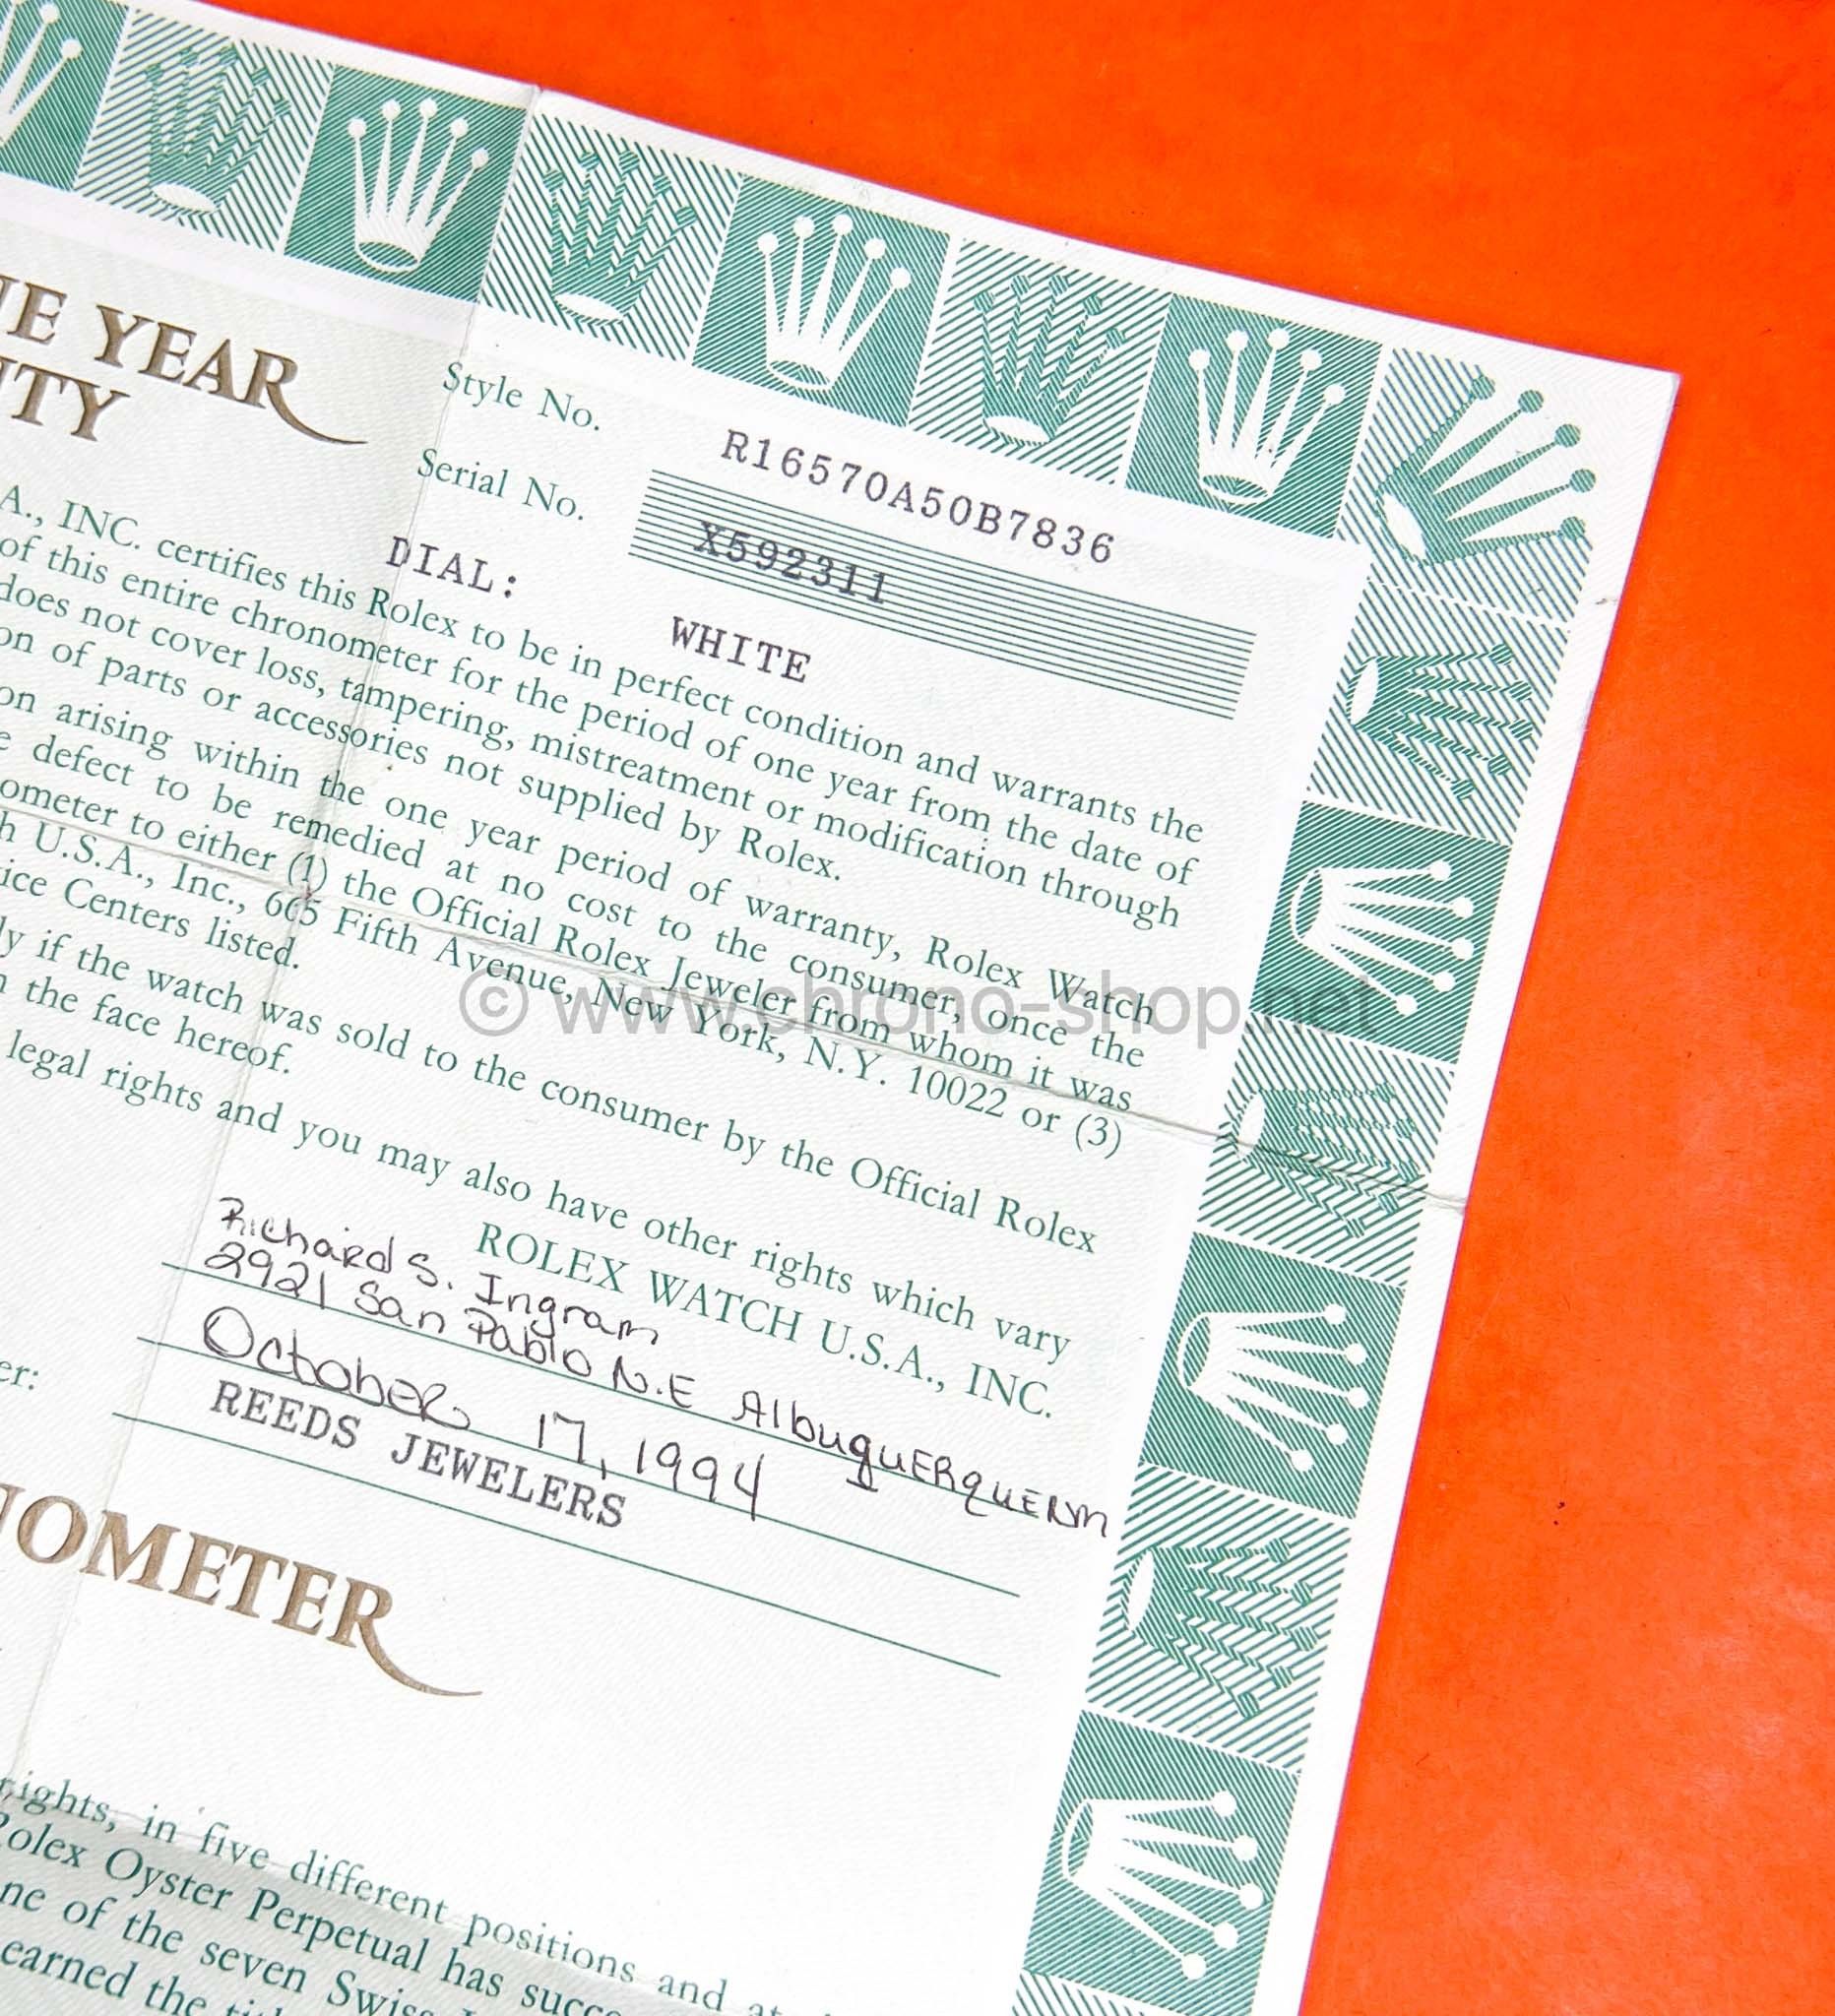 NE YEAR
NTY
Style No. R16570A50B7836
Serial No. X592311
DIAL: WHITE
A., INC. certifies this Rolex to be in perfect condition and warrants the
of this entire chronometer for the period of one year from the date of
does not cover loss, tampering, mistreatment or modification through
on of parts or accessories not supplied by Rolex.
on arising within the one year period of warranty, Rolex Watch
e defect to be remedied at no cost to the consumer, once the
ometer to either (1) the Official Rolex Jeweler from whom it was
h U.S.A., Inc., 665 Fifth Avenue, New York, N.Y. 10022 or (3)
ice Centers listed.
ly if the watch was sold to the consumer by the Official Rolex
n the face hereof.
legal rights and you may also have other rights which vary
ROLEX WATCH U.S.A., INC.
Richard S. Ingram
2921 San Pablo N.E Albuquerquenm
October 17, 1994
er: REEDS JEWELERS
NOMETER
rights, in five different positions and at
Rolex Oyster Perpetual has succe
ne of the seven Swiss
earned the
© www.chrono-shop.net